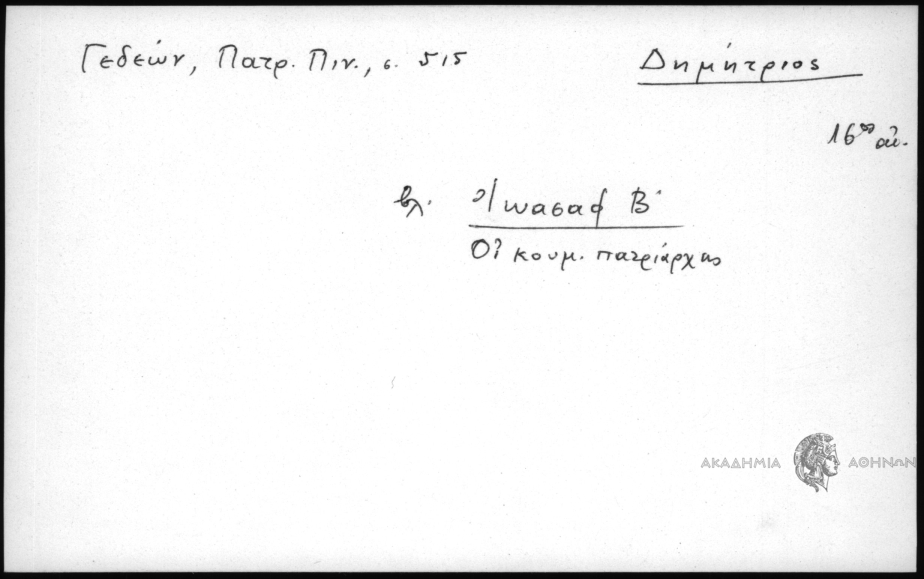 Γεδεών, Πατρ. Πιν., σ. 515
Δημήτριος
16ος αἰ.
βλ. Ἰωασαφ Β΄
Οἰκουμ. πατριάρχης
ΑΚΑΔΗΜΙΑ ΑΘΗΝΩΝ